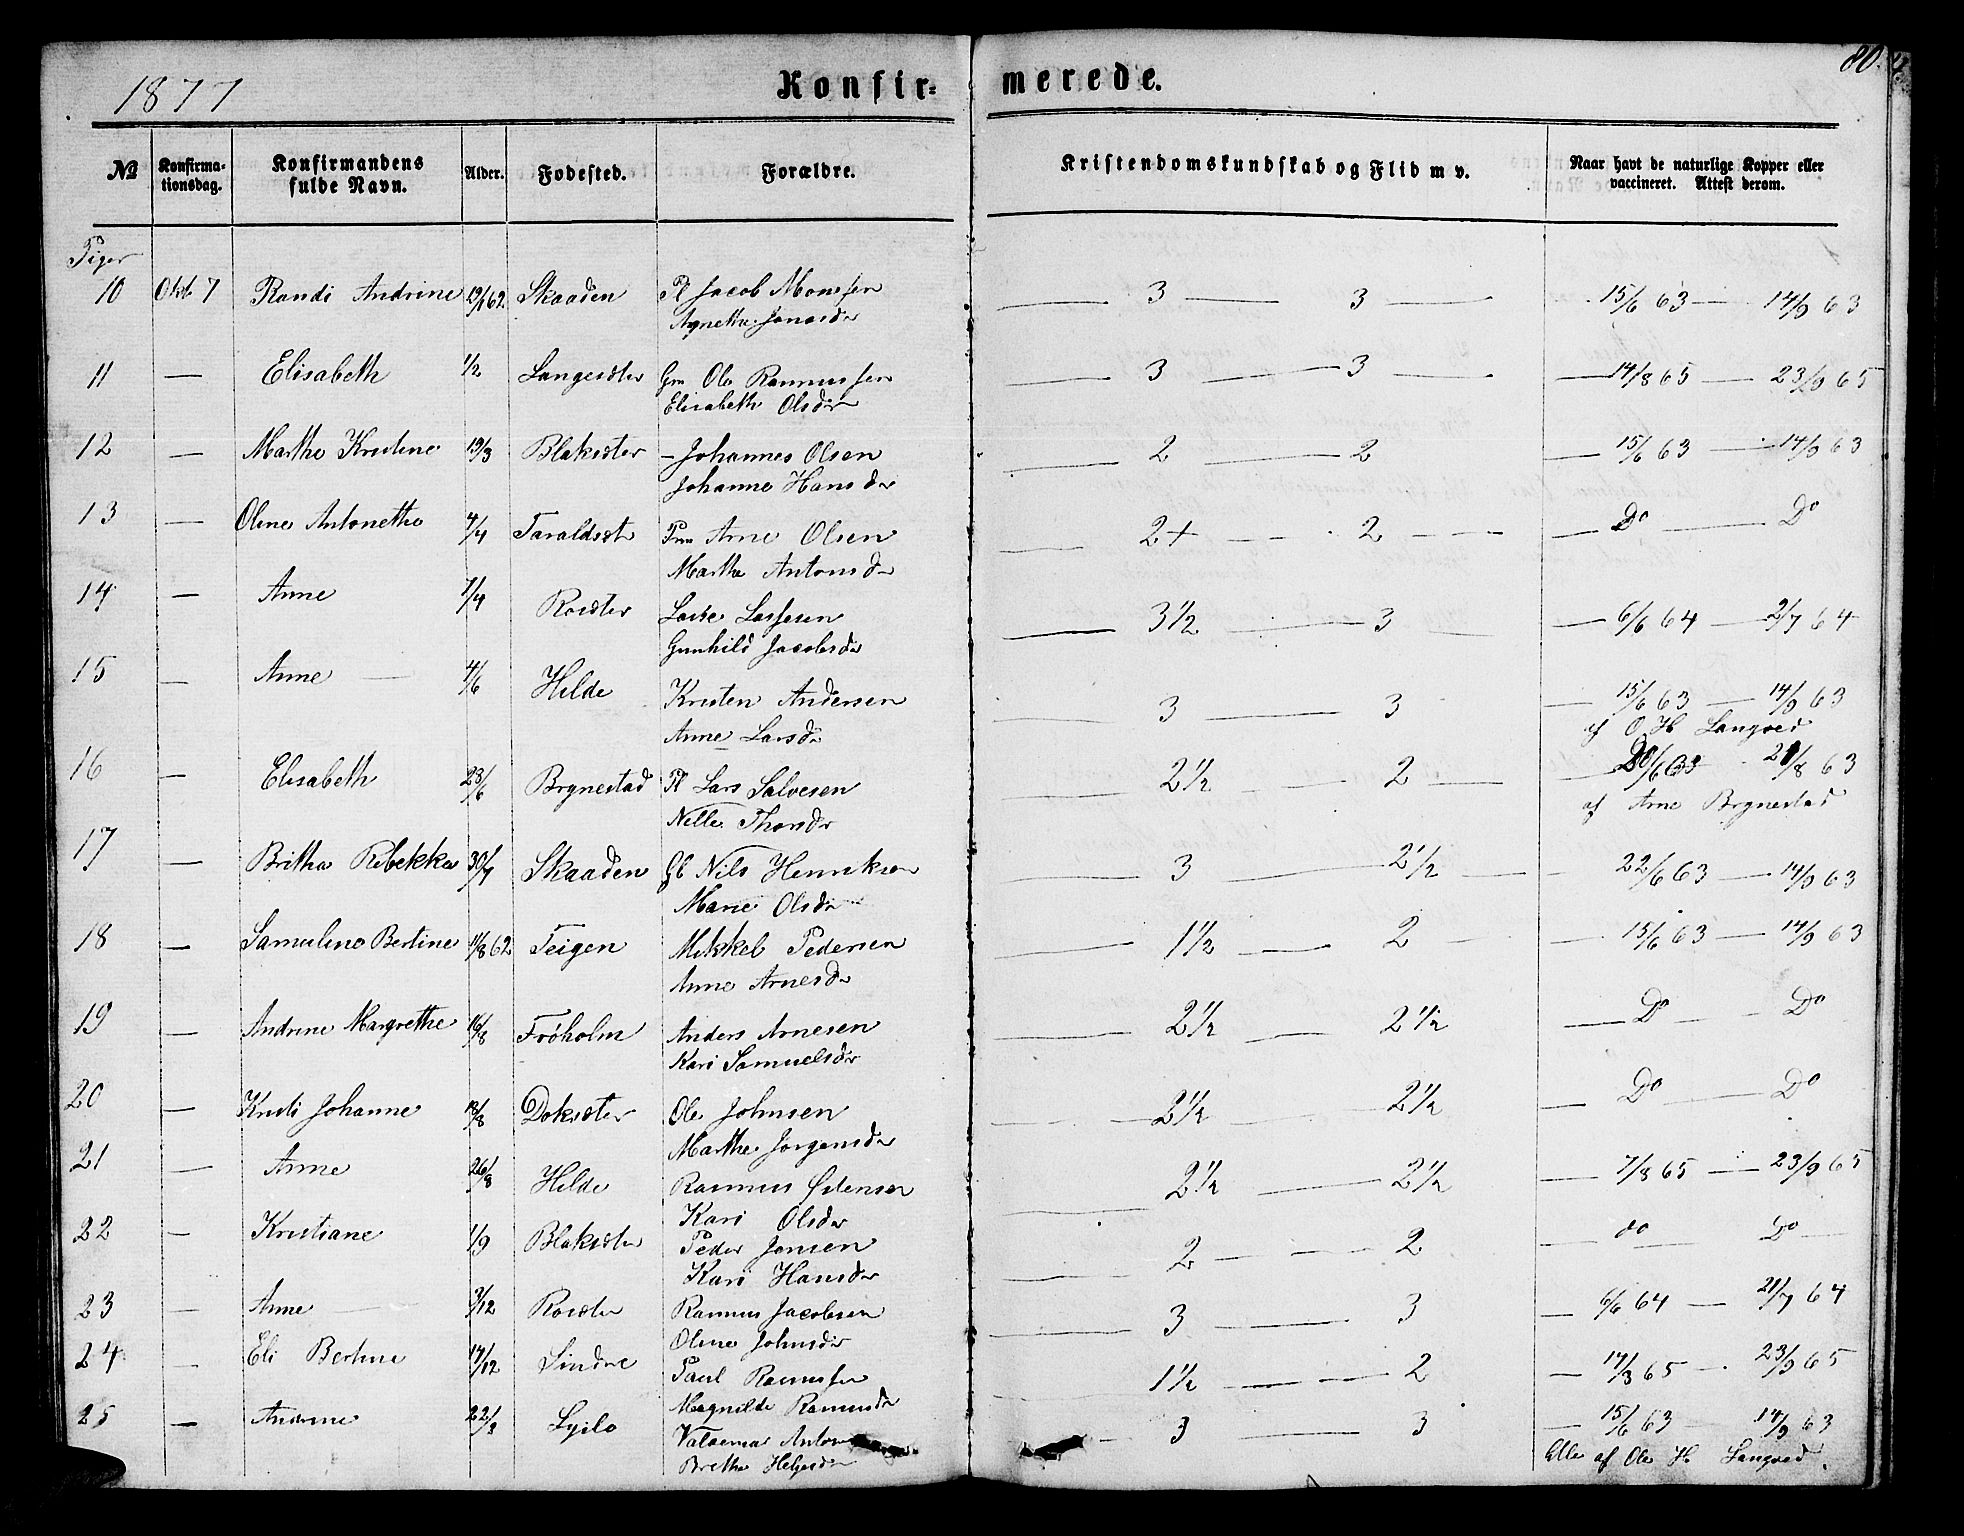 1877 Konfirmerede. 80.
№ Konfirmationsdag. Konfirmandens fulde Navn. Alder. Fødested. Forældre. Kristendomskundskab og Flid m v. Naar havt de naturlige Kopper eller vaccineret. Attest derom.
Piger
10 Okt 7 Randi Andrine 62 Skaaden Pl Jacob Monssen — 3 — 3 — 15/6 63 — 14/9 63
Agnethe Jonasdr
11 — Elisabeth 1/2 Langesæter Gm Ole Rasmussen — 3 — 3 — 14/8 65 — 23/9 65
Elisabeth Olsdr
12 — Marthe Kristine 19/3 Blaksæter — Johannes Olsen — 2 — 2 — 15/6 63 — 14/9 63
Johanne Hansdr
13 — Oline Antonette 4/4 Taraldset Arne Olsen — 2+ — 2 — Do — Do
Marthe Antonsdr
14 — Anne 7/4 Rosæter Lasse Lassesen — 3 1/2 — 3 — 6/6 64 — 2/7 64
Gunhild Jacobsdr
15 — Anne — 4/6 Hilde Kristen Andersen — 3 — 3 — 15/6 63 — 14/9 63
Anne Larsdr af O. H. Langved
16 — Elisabeth 23/6 Brynestad Pl Lars Salvesen — 2 1/2 — 2 — /6 63 63
Nelle Thorsdr af Arne Brynestad
17 — Britha Rebekka 30/7 Skaaden Gb Nils Henriksen — 3 — 2 1/2 — 22/6 63 — 14/9 63
Marie Olsdr
18 — Samueline Bertine 11/8 62 Teigen Mikkel Pedersen — 1 1/2 — 2 — 15/6 63 — 14/9 63
Anne Arnesdr
19 — Andrine Margrethe 16/8 Frøholm Anders Arnesen — 2 1/2 — 2 1/2 — Do — Do
Kari Samuelsdr
20 — Kristi Johanne 18/8 Doksæter Ole Johnsen — 2 1/2 — 2 1/2 — Do — Do
Marthe Jørgensdr
21 — Anne 26/8 Hilde Rasmus Østensen — 2 1/2 — 2 1/2 — 7/8 65 — 23/9 65
Kari Olsdr
22 — Kristiane 1/9 Blaksæter Peder Jonsen — 2 — 2 — do — Do —
Kari Hansdr
23 — Anne — 3/12 Rosæter Rasmus Jacobsen — 3 — 3 — 6/6 64 — 21/7 64
Oline Johnsdr
24 — Eli Bertine 14/12 Sindre Paul Rasmussen — 1 1/2 — 2 — 14/8 65 — 23/9 65
Magnilde Rasmusdr
25 — Andrine 22/3 Valdemar — 3 — 3 — 15/6 63 — 14/9 63
Brithe Helgesdr Alle af Ole H Langved.